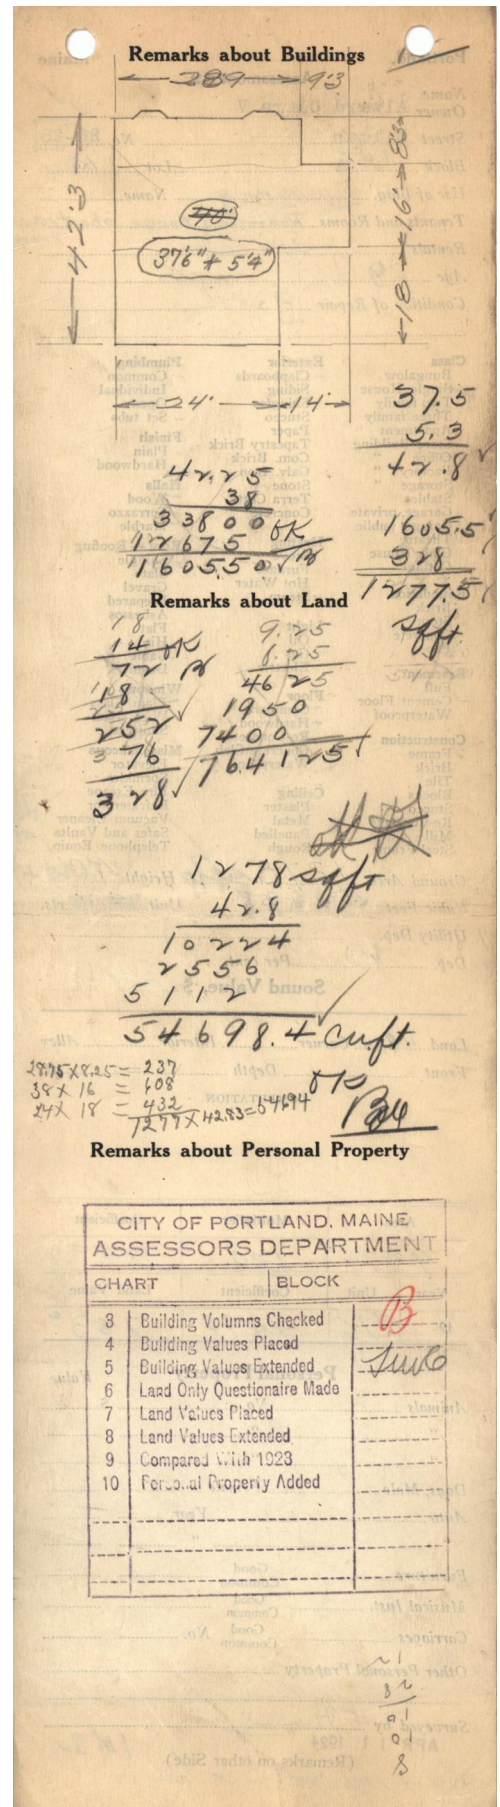 Remarks about Buildings
28'9 9'3
42'3
40'
37'6" + 5'4"
8'3
16'
18
24' 14'
37.5
5.3
42.8
42.25
38
33800 OK
12675
160550
1605.5
328
1277.5
sqft
Remarks about Land
18
14 OK
72
18
252
76
328
9.25
8.25
4625
1950
7400
764125
1278 sqft
42.8
10224
2556
5112
54698.4 cu ft.
OK
28.75 X 8.25 = 237
38 X 16 = 608
24 X 18 = 432
1277 X 42.83 = 54694
Remarks about Personal Property
CITY OF PORTLAND, MAINE
ASSESSORS DEPARTMENT
CHART BLOCK
3 Building Volumns Checked B
4 Building Values Placed
5 Building Values Extended
6 Land Only Questionaire Made
7 Land Values Placed
8 Land Values Extended
9 Compared With 1923
10 Personal Property Added